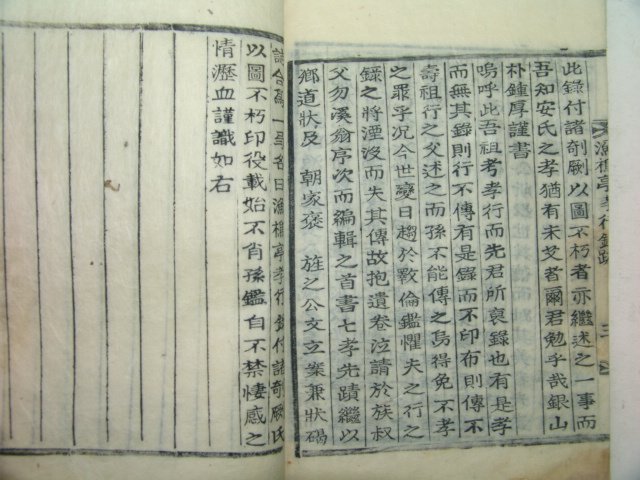 此錄付諸剞劂以圖不朽者亦繼述之一事而
吾知安氏之孝猶有未艾者爾君勉乎哉銀山
朴鍾厚謹書
嗚呼此吾祖考孝行而先君所裒錄也有是孝
而無其錄則行不傳有是錄而不印布則傳不
壽祖行之父述之而孫不能傳之烏得免不孝
之罪乎況今世變日趨於斁倫鑑懼夫之行之
錄之將湮沒而失其傳故抱遺卷泣請於族叔
父勿溪翁序次而編輯之首書七孝先蹟繼以
鄕道狀及 朝家褒 旌之公文立案兼狀碣
誌合爲一弓名曰漁樵亭孝行錄付諸剞劂氏
以圖不朽印役載始不肖孫鑑自不禁悽感之
情瀝血謹識如右
漁樵亭孝行錄跋 二